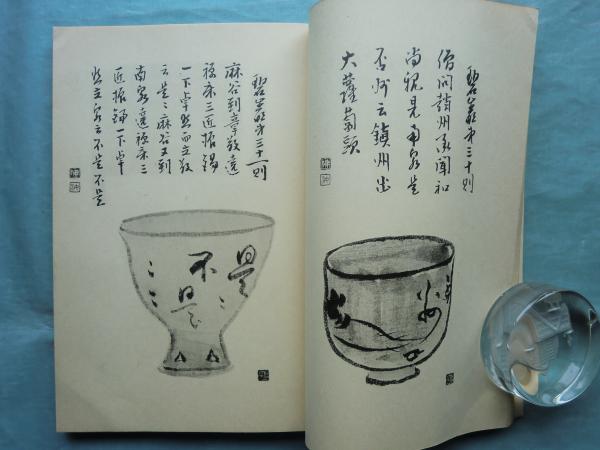 碧巖第三十則
僧問趙州承聞和
尚親見南泉是
否州云鎮州出
大蘿蔔頭
州
碧巖第三十一則
麻谷到章敬遶
禅床三匝振錫
一下卓然而立敬
云是〻麻谷又到
南泉遶禅床三
匝振錫一下卓
然立泉云不是不是
是〻
不是〻